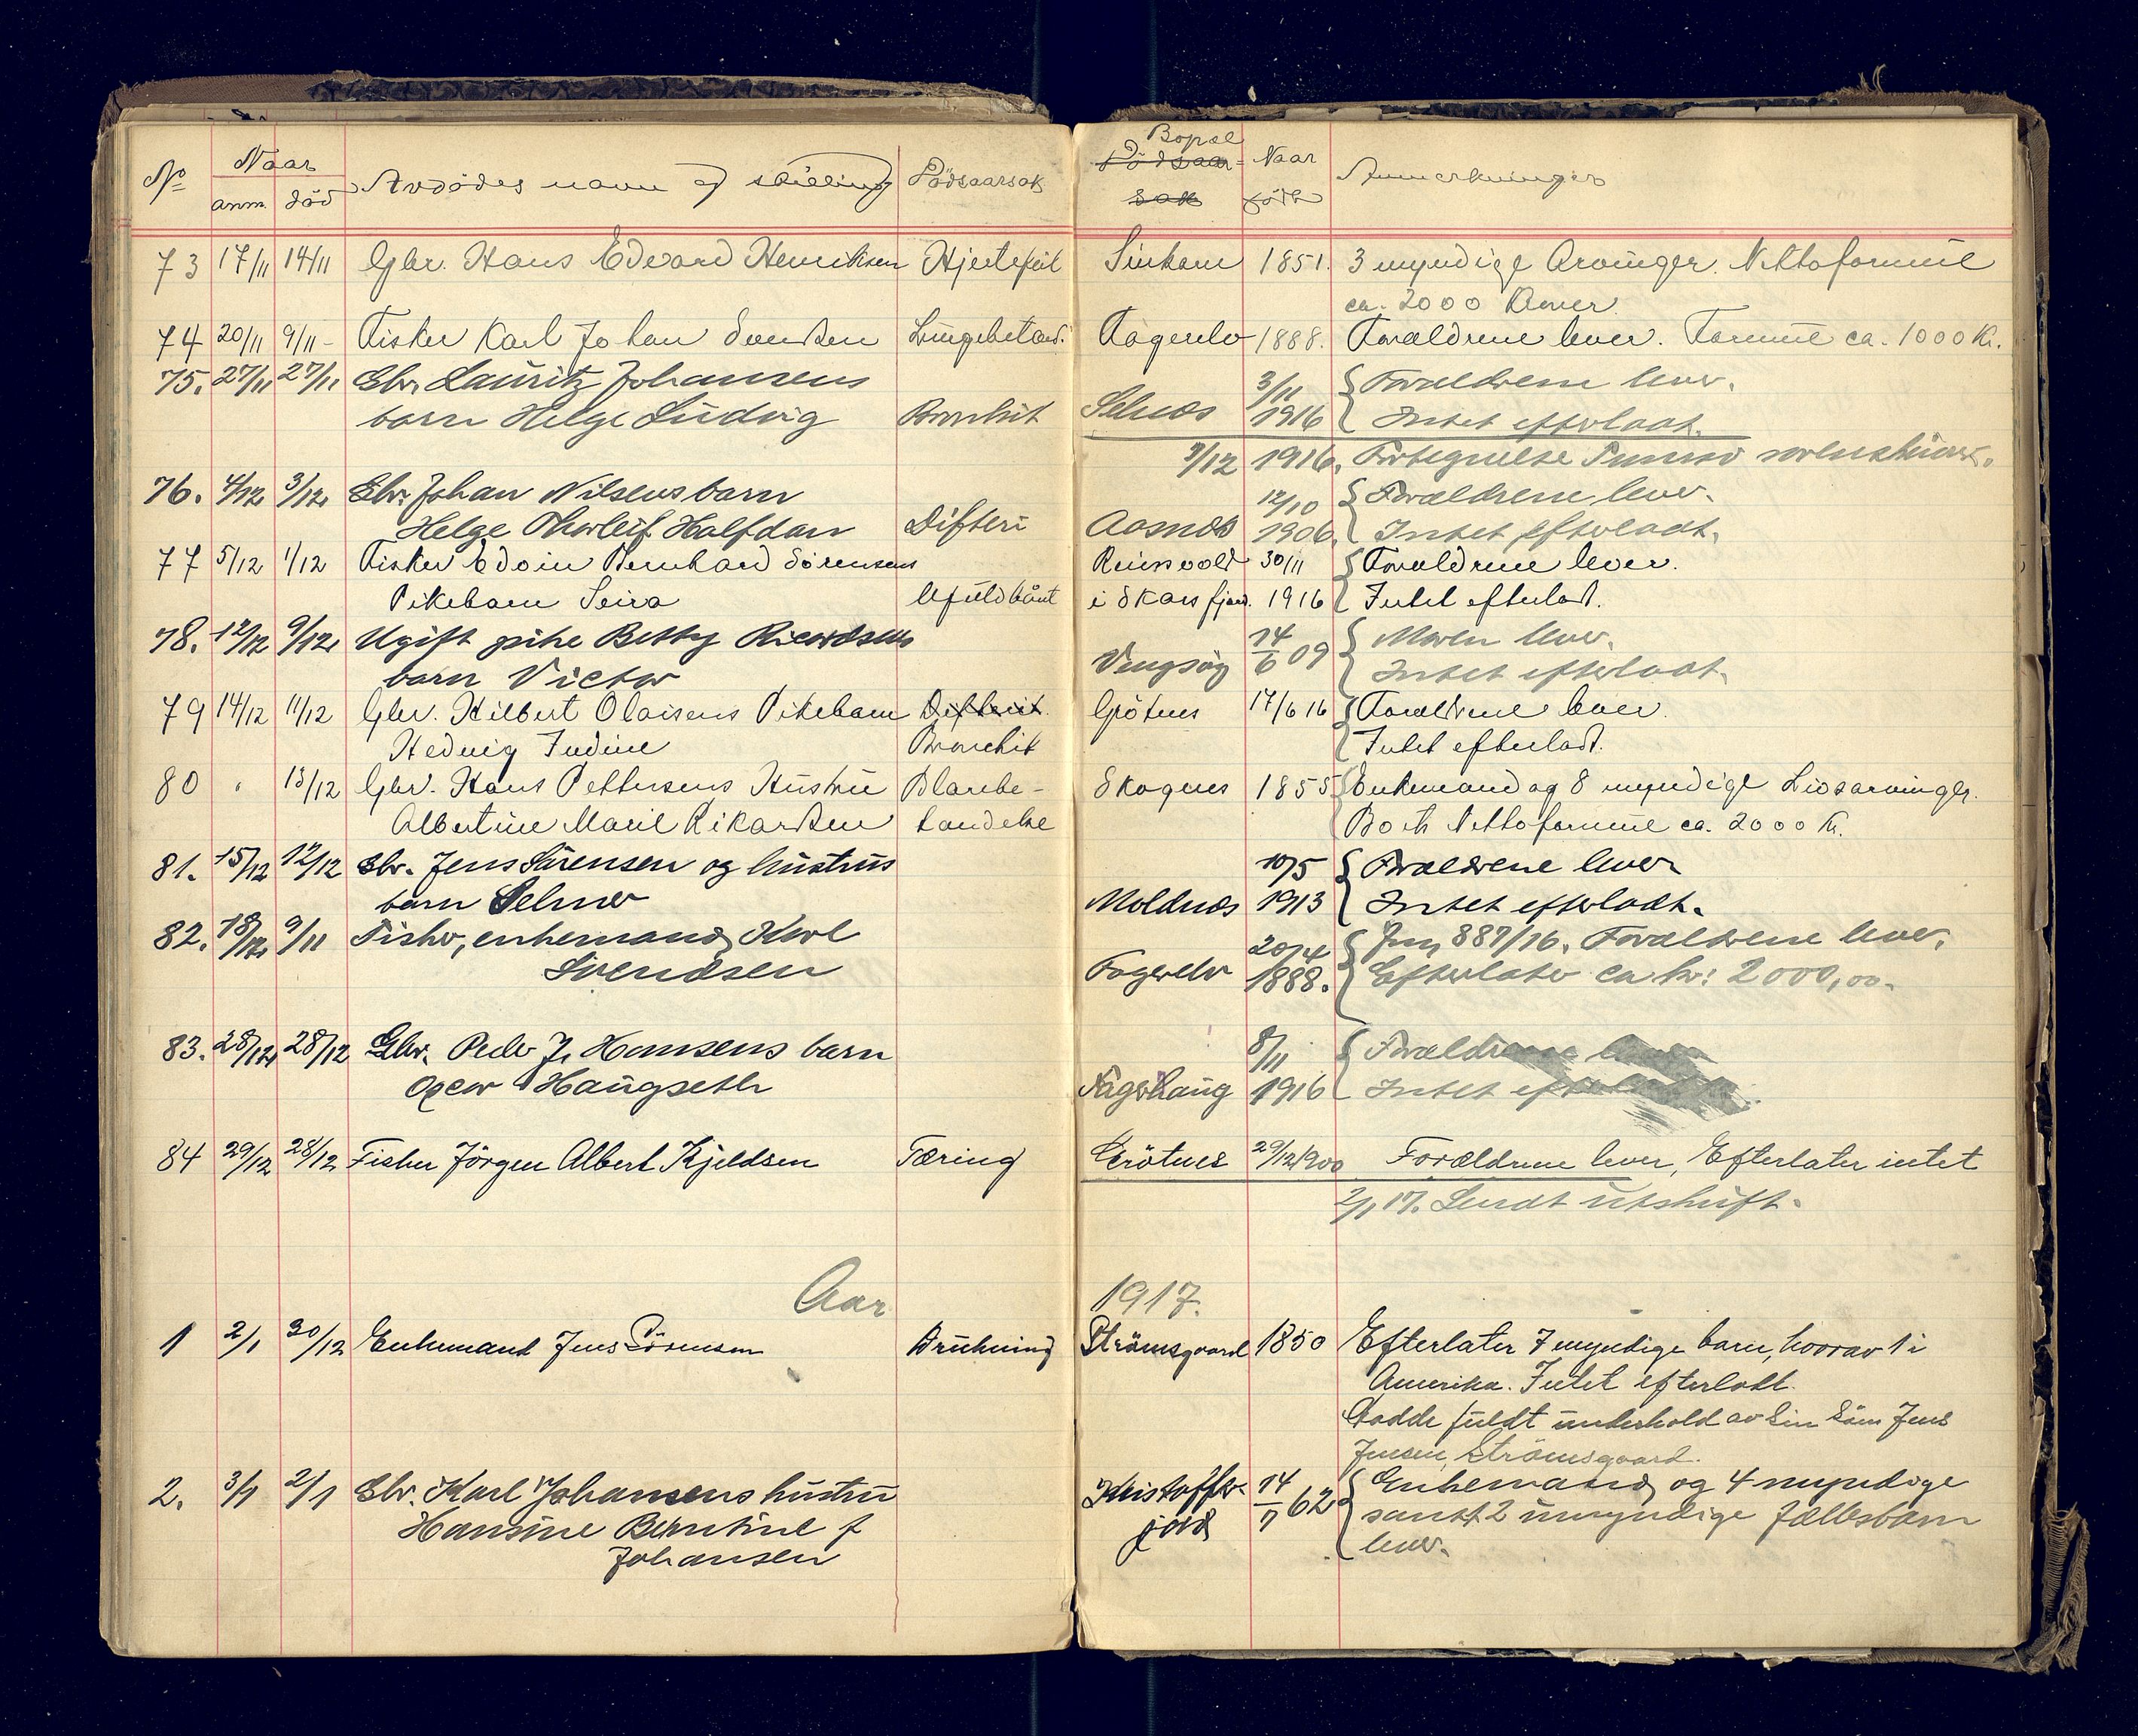 No Naar Avdødes navn og stilling Dødsaarsak Bopæl Naar Anmerkninger
anm. död Dödsaar- født
sak
73 17/11 14/11 Gbr. Hans Edvard Henriksen Hjertefeil 1851. 3 myndige Arvinger. Nettoformue
ca. 2000 Kroner
74 20/11 9/11 Fisker Karl Johan Svendsen Lungebetænd. Fagerelv 1888. Forældrene lever. Formue ca. 1000 Kr.
75. 27/11 27/11 Gbr. Lauritz Johansens 3/11 Forældrene lever.
barn Helge Ludvig Bronkit Selnæs 1916 Intet efterladt.
7/12 1916. Fortegnelse Tromsø sorenskriver.
76. 4/12 3/12 Gbr. Johan Nilsens barn 12/10 Forældrene lever.
Helge Thorleif Halfdan Difteri Aasnæs 1906. Intet efterladt.
77 5/12 1/12 Fisker Edvin Bernhard Sörensens Reinsvold 30/11 Forældrene lever.
Pikebarn Seira Ufuldbåret i Skarsfjord. 1916 Intet efterladt.
78. 12/12 9/12 Ugift pike Betsy Ricardsens 14/6 09 Moren lever.
barn Victor Vengsøy Intet efterladt.
79 14/12 11/12 Gbr. Hilbert Olaisens Pikebarn Difterit Grötnes 17/6 16 Forældrene lever.
Hedvig Indine Bronchit Intet efterladt.
80 " 13/12 Gbr. Hans Pettersens Hustru Blærebe- Skognes 1855 Enkemand og 8 myndige Livsarvinger.
Albertine Marie Rikardsen tændelse Boets Nettoformue ca. 2000 Kr.
81. 15/12 12/12 Gbr. Jens Sörensen og hustrus 10/5 Forældrene lever
barn Selmer Moldnæs 1913 Intet efterladt.
82. 18/12 9/11 Fisker, enkemand Karl 20/4 Jnr. 887/16. Forældrene lever.
Svendsen Fagerelv 1888. Efterlater ca kr: 2000,00.
83. 28/12 28/12 Gbr. Peder J. Hansens barn 8/11 Forældrene lever
Oscar Haugseth 1916 Intet efterladt.
84 29/12 28/12 Fisker Jörgen Albert Kjeldsen Tæring Grötnes 29/12 1900 Forældrene lever, Efterlater intet
2/1 17. Sendt utskrift.
Aar 1917.
1 2/1 30/12 Enkemand Jens Sörensen Drukning Strömsgaard 1850 Efterlater 7 myndige barn, hvorav 1 i
Amerika. Intet efterladt.
Hadde fuldt underhold av sin Sön Jens
Jensen, Strömsgaard.
2. 3/1 2/1 Gbr. Karl Johansens hustru Kristoffer- 14/7 62 Enkemand og 4 myndige
Hansine Berntine f jord samt 2 umyndige fællesbarn
Johansen lever.